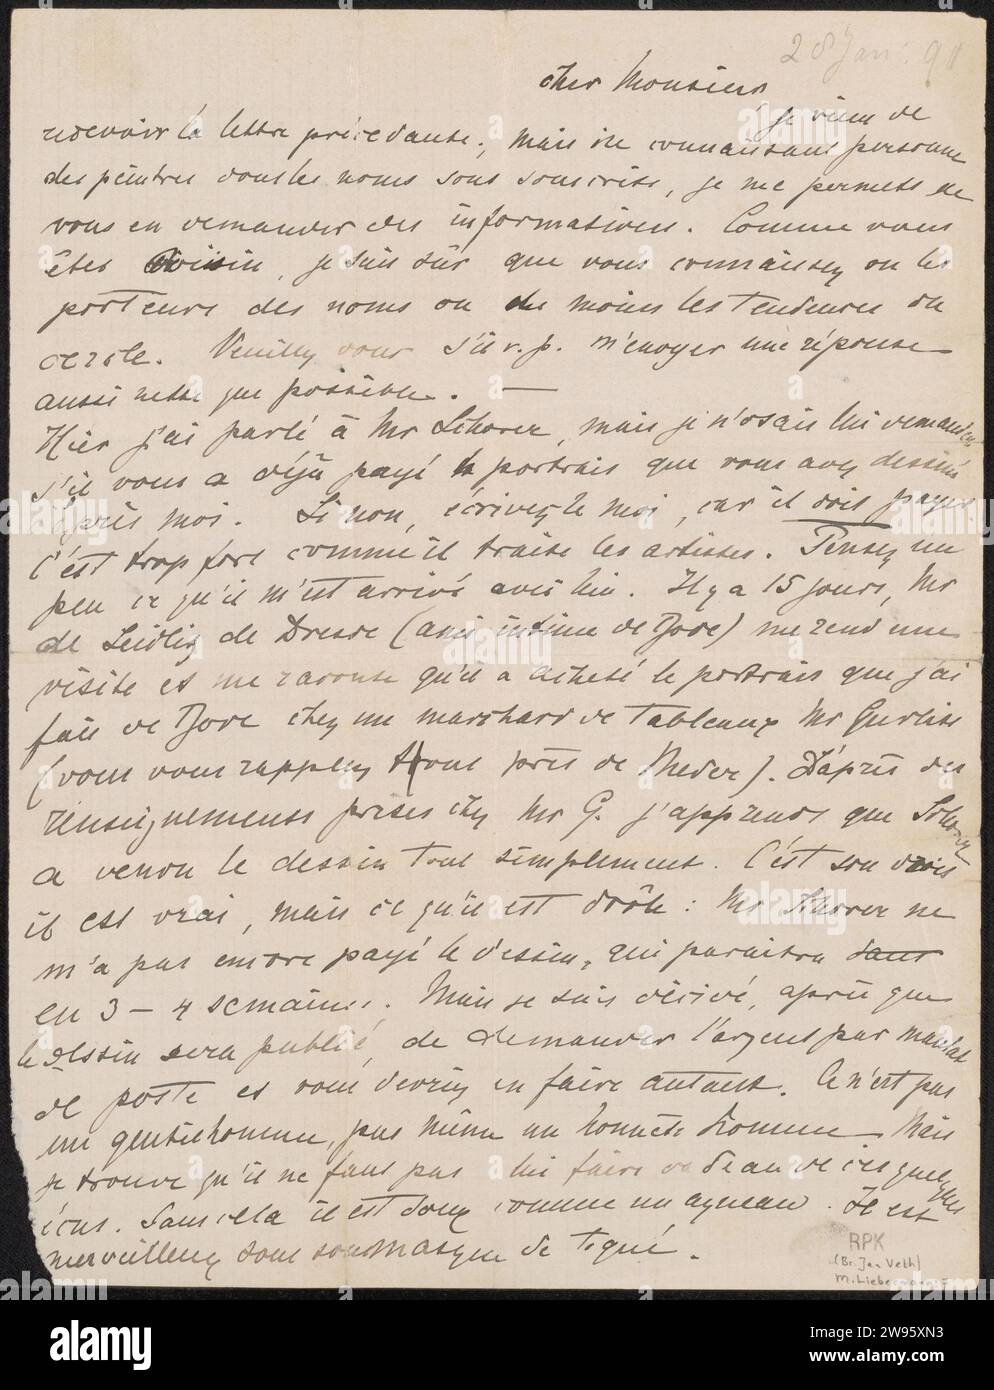 28 Jan. 91
cher Monsieur
je viens de
recevoir la lettre précedante; mais ne connaissant personne
des peintres dont les noms sont souscrits, je me permets de
vous en demander des informations. Comme vous
êtes voisin, je suis sûr que vous connaissez ou les
porteurs des noms ou du moins les tendences du
cercle. Veuillez donc s'il v. p. m'envoyer une réponse
aussi nette que possible. —
Hier j'ai parlé à Mr Schorer, mais je n'osais lui demander
s'il vous a déjà payé le portrait que vous avez dessiné
d'après moi. Si non, écrivez le moi, car il doit payer.
C'est trop fort comme il traite les artistes. Pensez un
peu ce qu'il m'est arrivé avec lui. Il y a 15 jours, Mr
de Seidliz de Dresde (ami intime de Bode) me rend une
visite et me raconte qu'il a acheté le portrait que j'ai
fait de Bode chez un marchand de tableaux Mr Gurlitt
(vous vous rappelez tout près de Meder). D'après des
renseignements prises chez Mr G. j'apprends que Schorer
a vendu le dessin tout simplement. C'est son droit
il est vrai, mais ce qu'il est drôle: Mr Schorer ne
m'a pas encore payé le dessin, qui paraîtra dans
en 3 – 4 semaines. Mais je suis décidé, après que
le dessin sera publié, de demander l'argent par mandat
de poste et vous devriez en faire autant. Ce n'est pas
un gentilhomme, pas même un honnête homme Mais
je trouve qu'il ne faut pas lui faire cadeau de ces quelques
écus. Sans cela il est doux comme un agneau. Il est
merveilleux sous son masque de tigré.
RPK
(Br. Jan Veth)
M. Liebermann
alamy
a
2W95XN3
www.alamy.com